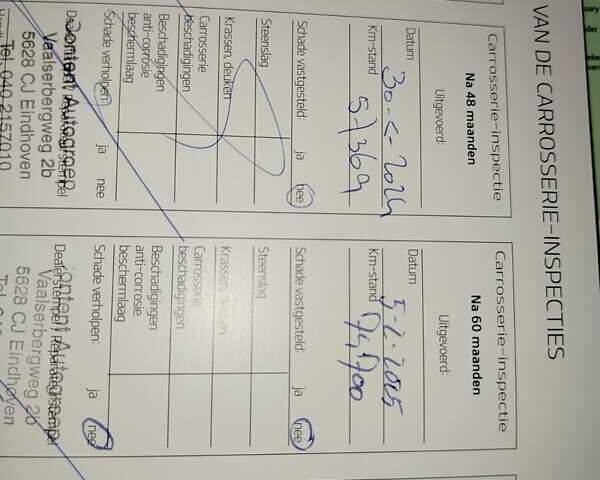 VAN DE CARROSSERIE-INSPECTIES
Carrosserie-inspectie
Na 48 maanden
Uitgevoerd:
Datum
Km-stand
Schade vastgesteld: ja nee
Steenslag
Krassen, deuken
Carrosserie
beschadigingen
Beschadigingen
anti-corrosie
beschermlaag
Schade verholpen: ja nee
Content Autogroep
Vaalserbergweg 2b
5628 CJ Eindhoven
Tel. 040 2157010
Carrosserie-inspectie
Na 60 maanden
Uitgevoerd:
Datum 5-2-2025
Km-stand
Schade vastgesteld: ja nee
Steenslag
Krassen, deuken
Carrosserie
beschadigingen
Beschadigingen
anti-corrosie
beschermlaag
Schade verholpen: ja nee
Dealerstempel / Reparateurstempel
Vaalserbergweg 2b
5628 CJ Eindhoven